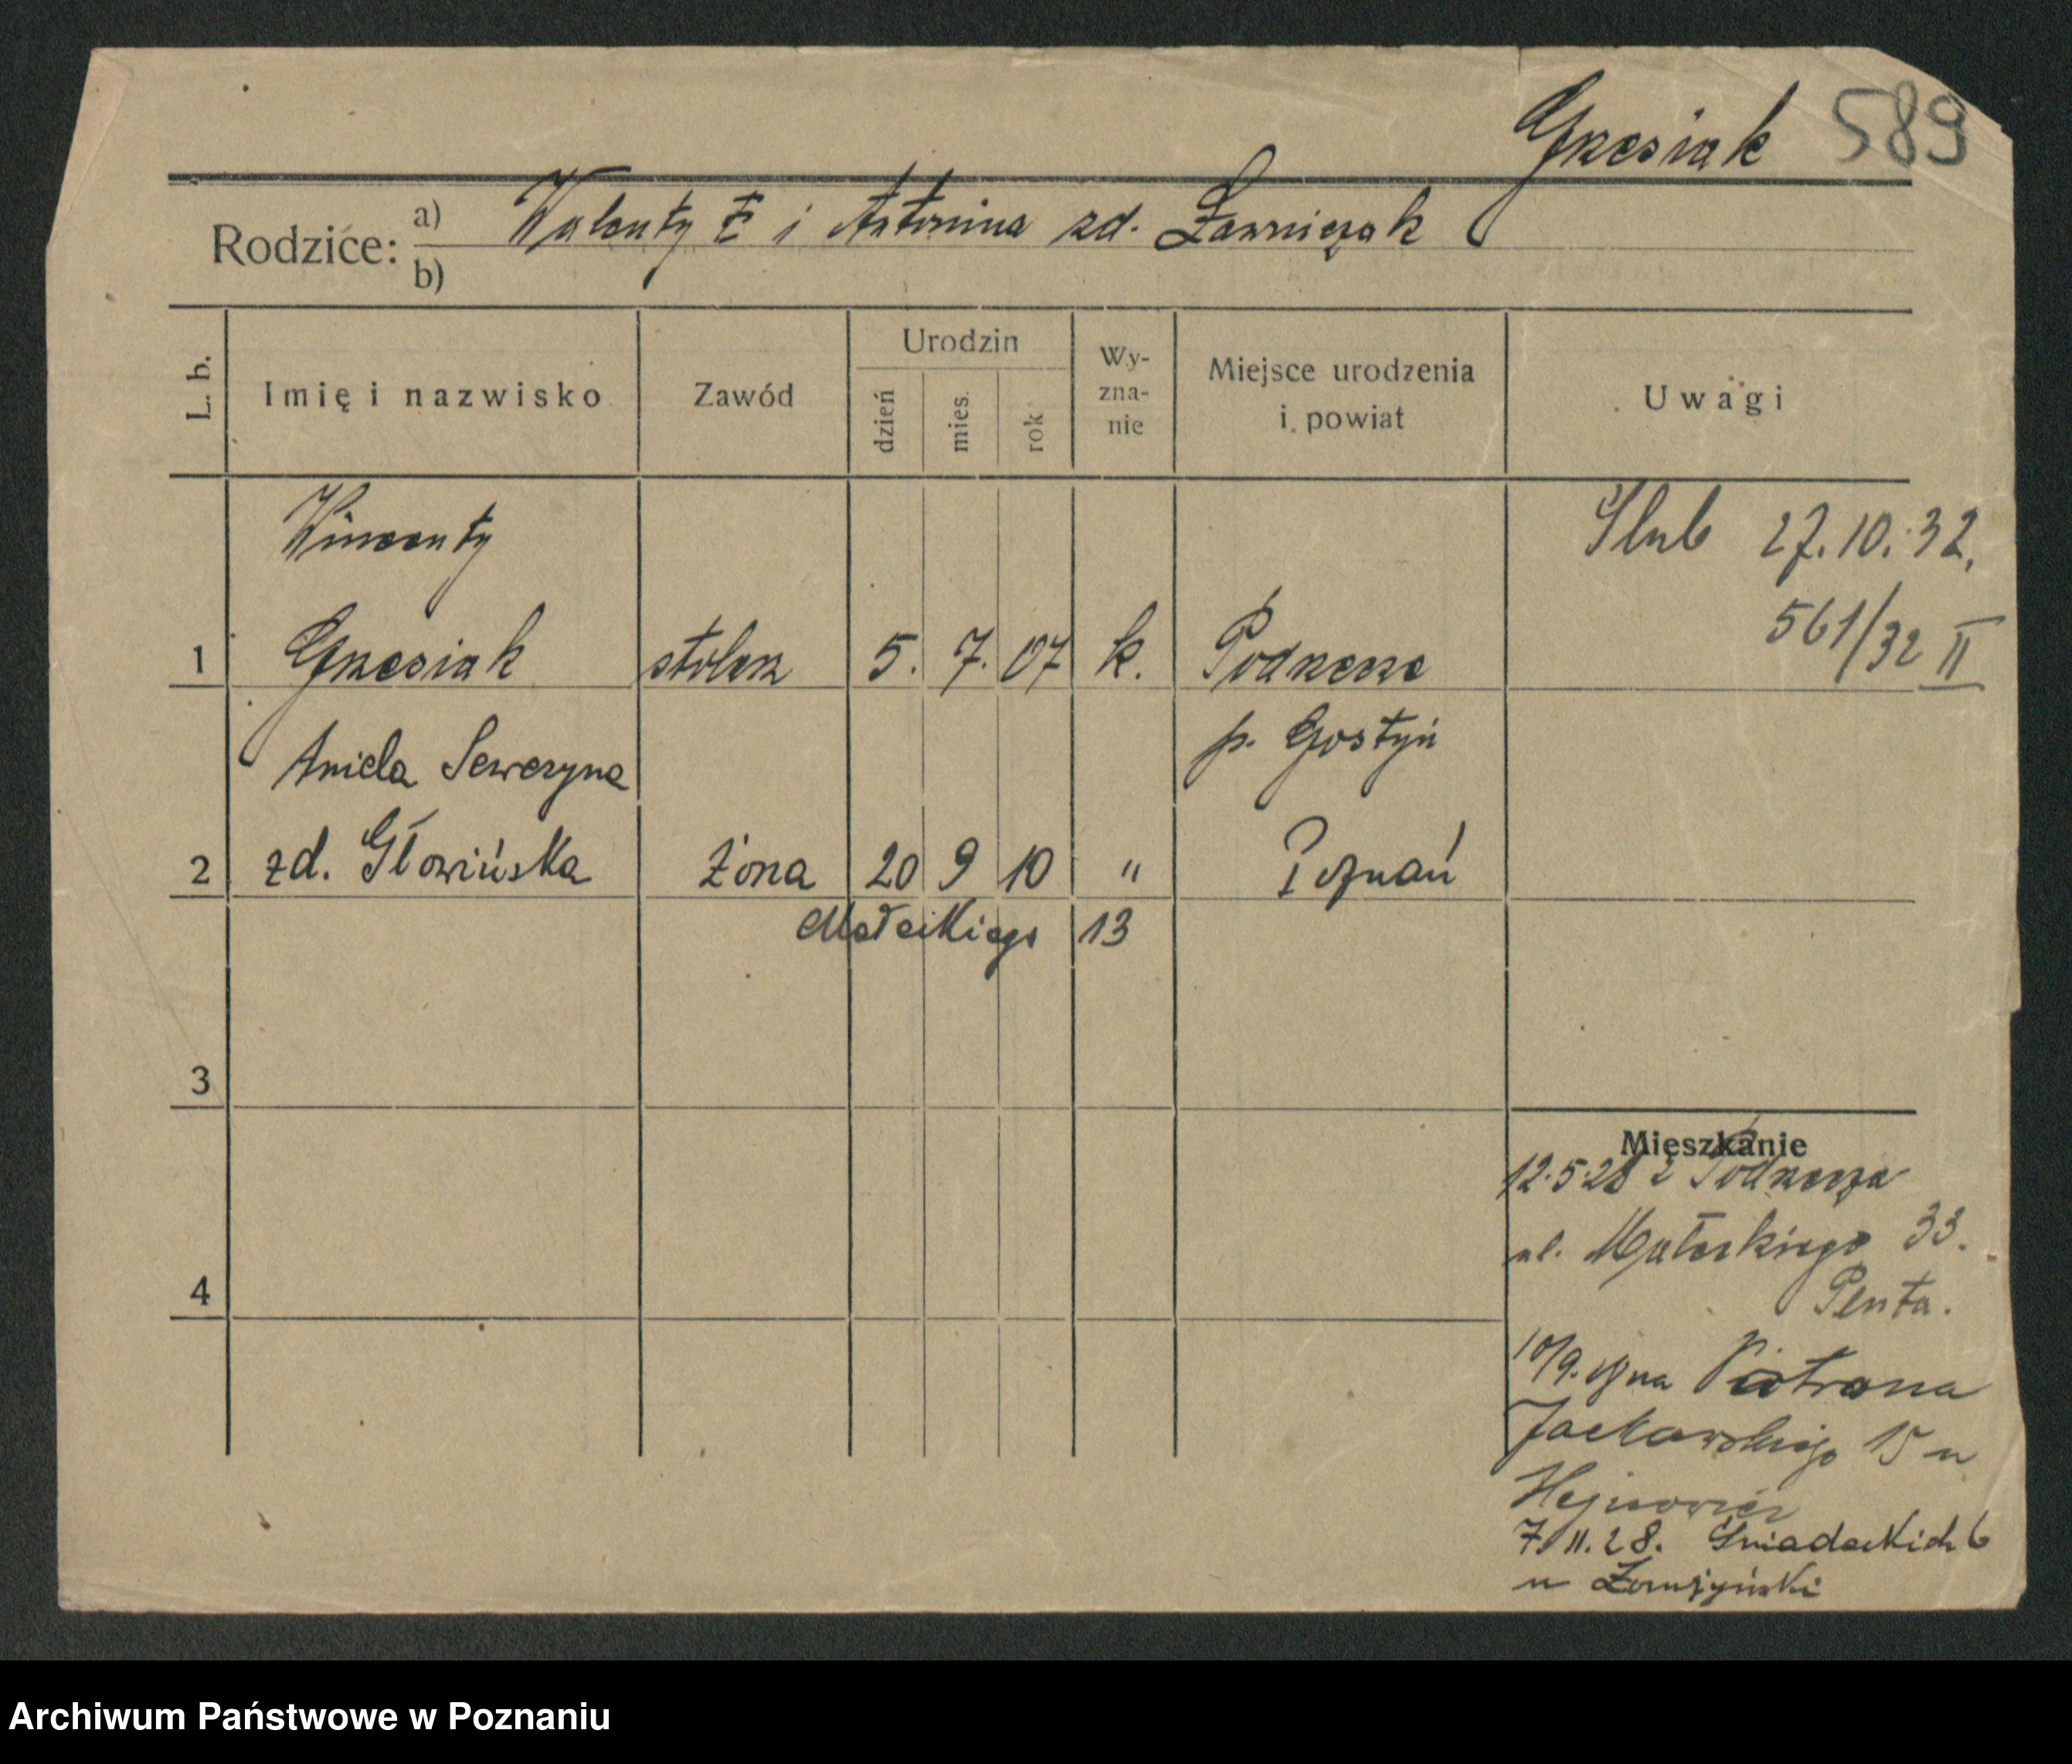 Grzesiak 589
Rodzice: a) Walenty i Antonina zd. Ławniczak
b)
L. b. Imię i nazwisko Zawód Urodzin dzień mies. rok Wy-zna-nie Miejsce urodzenia i powiat Uwagi
Wincenty Ślub 27.10.32.
561/32 II
1 Grzesiak stolarz 5. 7. 07 k. Podrzecze
p. Gostyń
Aniela Seweryna
2 zd. Głowińska żona 20 9 10 " Poznań
Małeckiego 13
3
Mieszkanie
12.5.28 z Podrzecza
ul. Małeckiego 33.
Penta.
4
10/9. Patrona
Jackowskiego 15 u
7.11.28. Śniadeckich 6
u
Archiwum Państwowe w Poznaniu